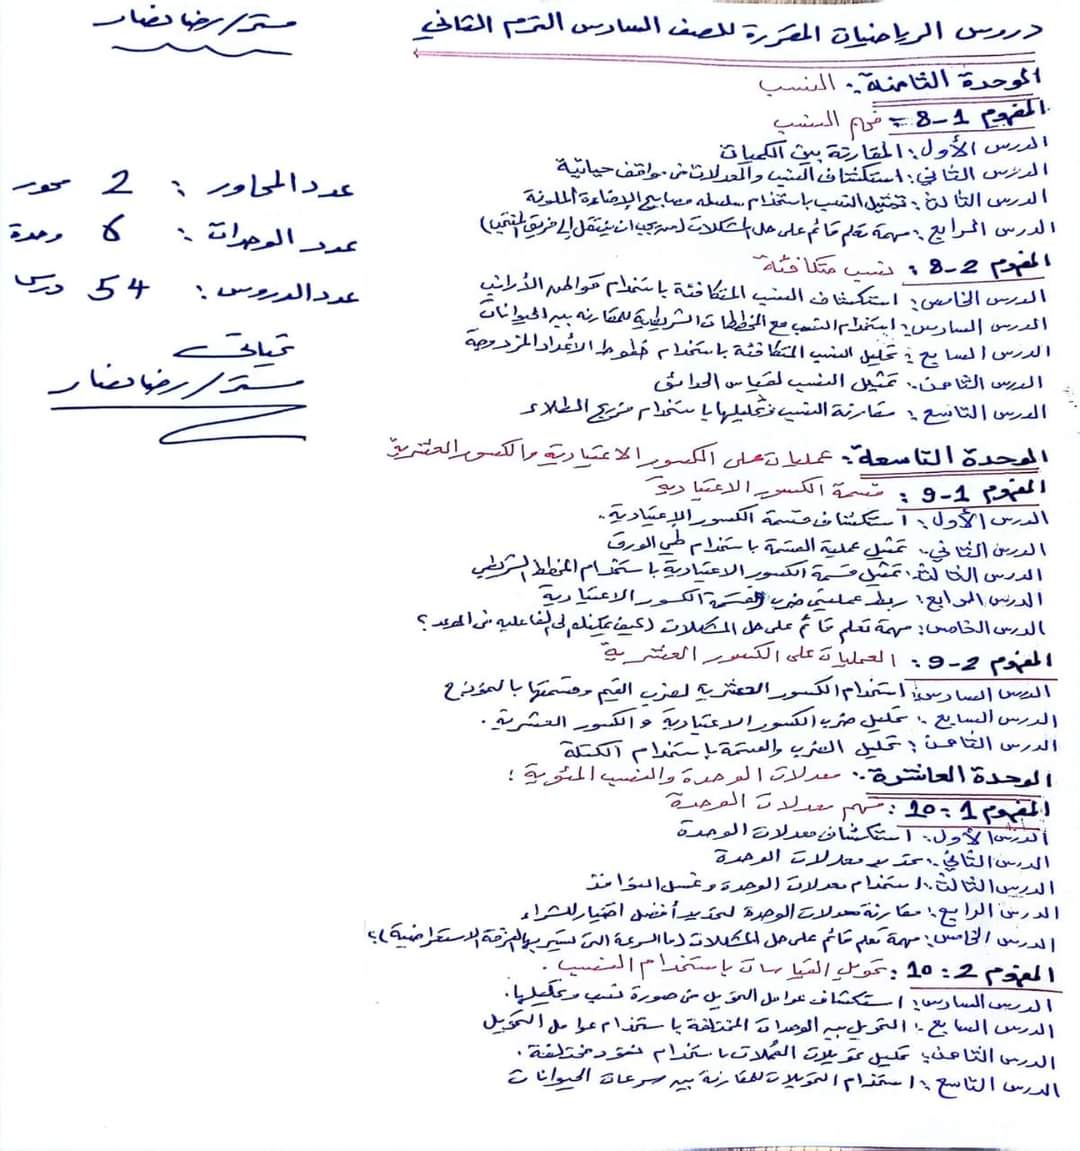 دروس الرياضيات المقررة للصف السادس الترم الثاني
مستر/ رضا نصار
الوحدة الثامنة: النسب
المفهوم 1-8: فهم النسب
الدرس الأول: المقارنة بين الكميات
الدرس الثاني: استكشاف النسب والمعدلات من مواقف حياتية
الدرس الثالث: تمثيل النسب باستخدام سلسله مصابيح الإضاءة الملونة
الدرس الرابع: مهمة تعلم قائم على حل المشكلات (من يجب ان ينتقل إلى فريق المنتخب)
المفهوم 2-8: نسب متكافئة
الدرس الخامس: استكشاف النسب المتكافئة باستخدام قواطع الأرانب
الدرس السادس: استخدام النسب مع المخططات الشريطية للمقارنه بين الحيوانات
الدرس السابع: تحليل النسب المتكافئة باستخدام خطوط الأعداد المزدوجة
الدرس الثامن: تمثيل النسب لقياس الحدائق
الدرس التاسع: مقارنة النسب وتحليلها باستخدام مزيج الطلاء
الوحدة التاسعة: عمليات على الكسور الاعتيادية والكسور العشرية
المفهوم 1-9: قسمة الكسور الاعتيادية
الدرس الأول: استكشاف قسمة الكسور الإعتيادية.
الدرس الثاني: تمثيل عملية القسمة باستخدام طي الورق
الدرس الثالث: تمثيل قسمة الكسور الاعتيادية باستخدام المخطط الشريطي
الدرس الرابع: ربط عمليتي ضرب وقسمة الكسور الاعتيادية
الدرس الخامس: مهمة تعلم قائم على حل المشكلات (كيف يمكنك
المفهوم 2-9: العمليات على الكسور العشرية
الدرس السادس: استخدام الكسور العشرية لضرب القيم وقسمتها بالنموذج
الدرس السابع: تحليل ضرب الكسور الاعتيادية والكسور العشرية.
الدرس الثامن: تحليل الضرب والقسمة باستخدام الكتلة
الوحدة العاشرة: معدلات الوحدة والنسب المئوية:
المفهوم 1:10: فهم معدلات الوحدة
الدرس الأول: استكشاف معدلات الوحدة
الدرس الثاني: تحديد معدلات الوحدة
الدرس الثالث: استخدام معدلات الوحدة وغسل النوافذ
الدرس الرابع: مقارنة معدلات الوحدة لتحديد أفضل اختيار للشراء
الدرس الخامس: مهمة تعلم قائم على حل المشكلات (ما السرعة التي تسير بها الفرقة الاستعراضية)؟
المفهوم 2:10: تحويل القياسات باستخدام النسب.
الدرس السادس: استكشاف عوامل التحويل من صورة نسب وتحليلها.
الدرس السابع: التحويل بين الوحدات المختلفة باستخدام عوامل التحويل
الدرس الثامن: تحليل تحويلات العملات باستخدام نقود مختلفة.
الدرس التاسع: استخدام التحويلات للمقارنة بين سرعات الحيوانات
عدد المحاور: 2 محور
عدد الوحدات: 6 وحدة
عدد الدروس: 54 درس
تحياتي
مستر/ رضا نصار